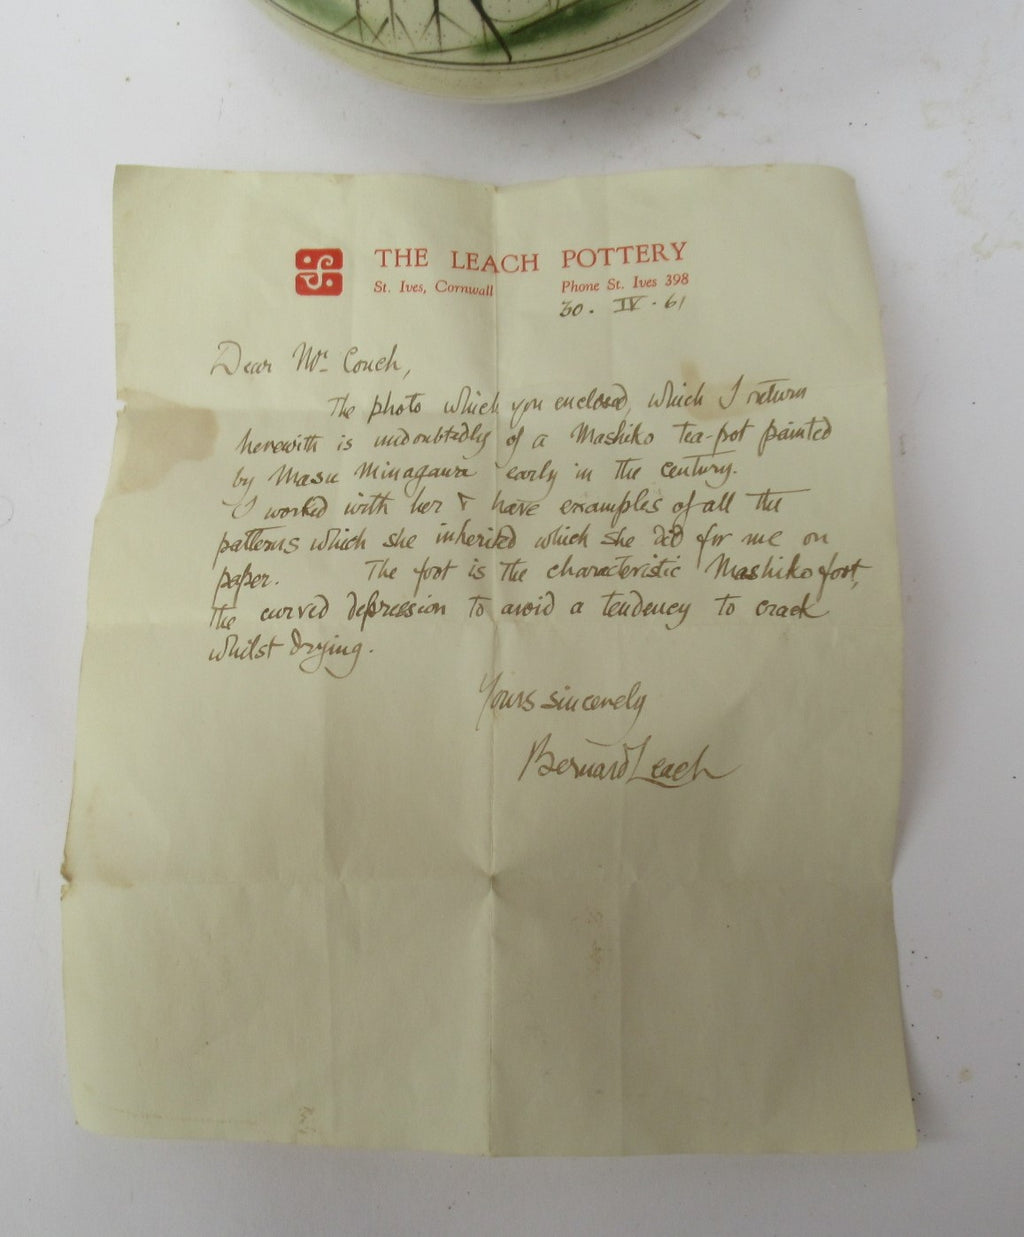 THE LEACH POTTERY
St. Ives, Cornwall Phone St. Ives 398
30. IV. 61
Dear Mr. Couch,
The photo which you enclosed, which I return
herewith is undoubtedly of a Mashiko tea-pot painted
by Masu Minagawa early in the century.
I worked with her & have examples of all the
patterns which she inherited which she did for me on
paper. The foot is the characteristic Mashiko foot,
the curved depression to avoid a tendency to crack
whilst drying.
Yours sincerely
Bernard Leach